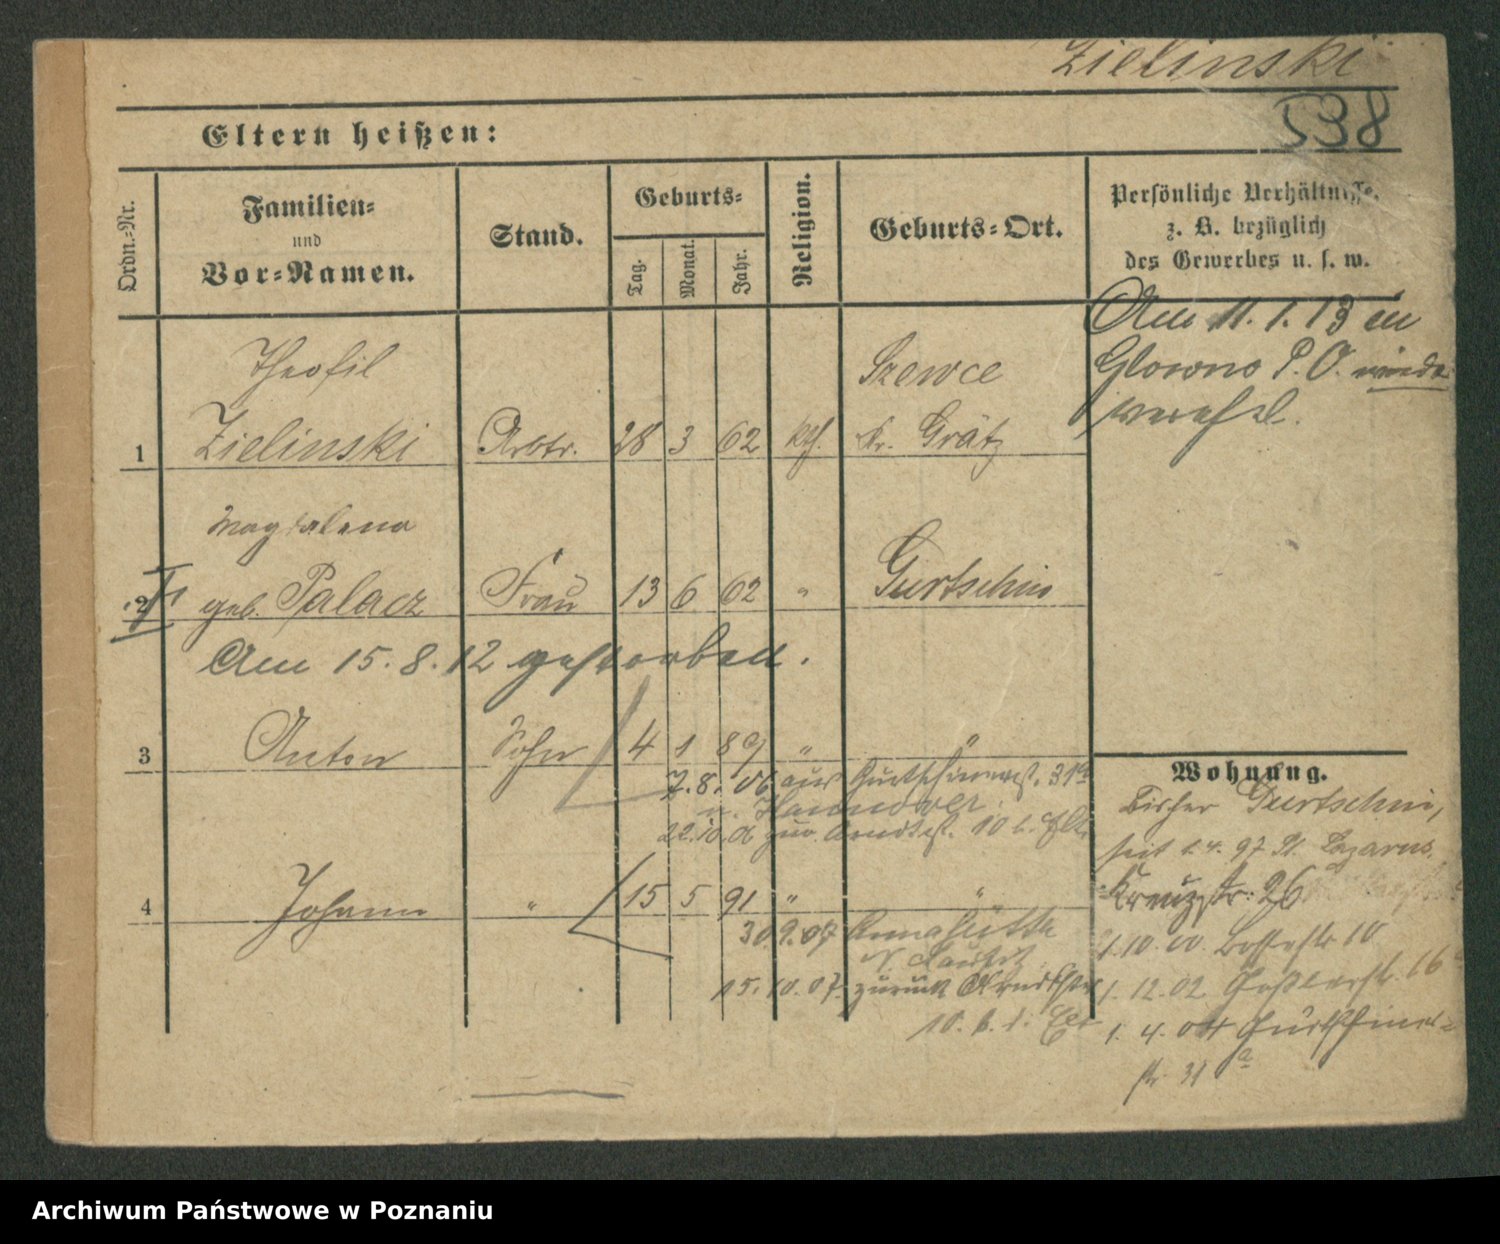 Zielinski
538
Eltern heißen:
Ordn.-Nr.
Familien-
und
Vor-Namen.
Stand.
Geburts-
Tag.
Monat.
Jahr.
Religion.
Geburts-Ort.
Persönliche Verhältnisse,
z. B. bezüglich
des Gewerbes u. s. w.
Am 11.1.13 in
Glowno P. O.
Theofil Szewce
1 Zielinski Arbtr. 28 3 62 kth. Kr. Grätz
Magdalena
2 geb. Palacz Frau 13 6 62 " Gurtschin
Am 15.8.12 gestorben.
3 Anton Sohn 4 1 89 " "
7.8.06 aus Gurtschinerst. 31a
n. Hannover
22.10.06 zur. Arndtst. 10 b. Elt.
4 Johann " 15 5 91 " "
30.9.07 Annahütte
15.10.07. zurück Arndtstr
10. b. d. Elt
Wohnung.
bisher Gurtschin,
seit 1.4.97 St. Lazarus,
Kreuzstr. 26
1.10.00. 10
1.12.02 16
1.4.04 Gurtschiner-
str 31a
Archiwum Państwowe w Poznaniu